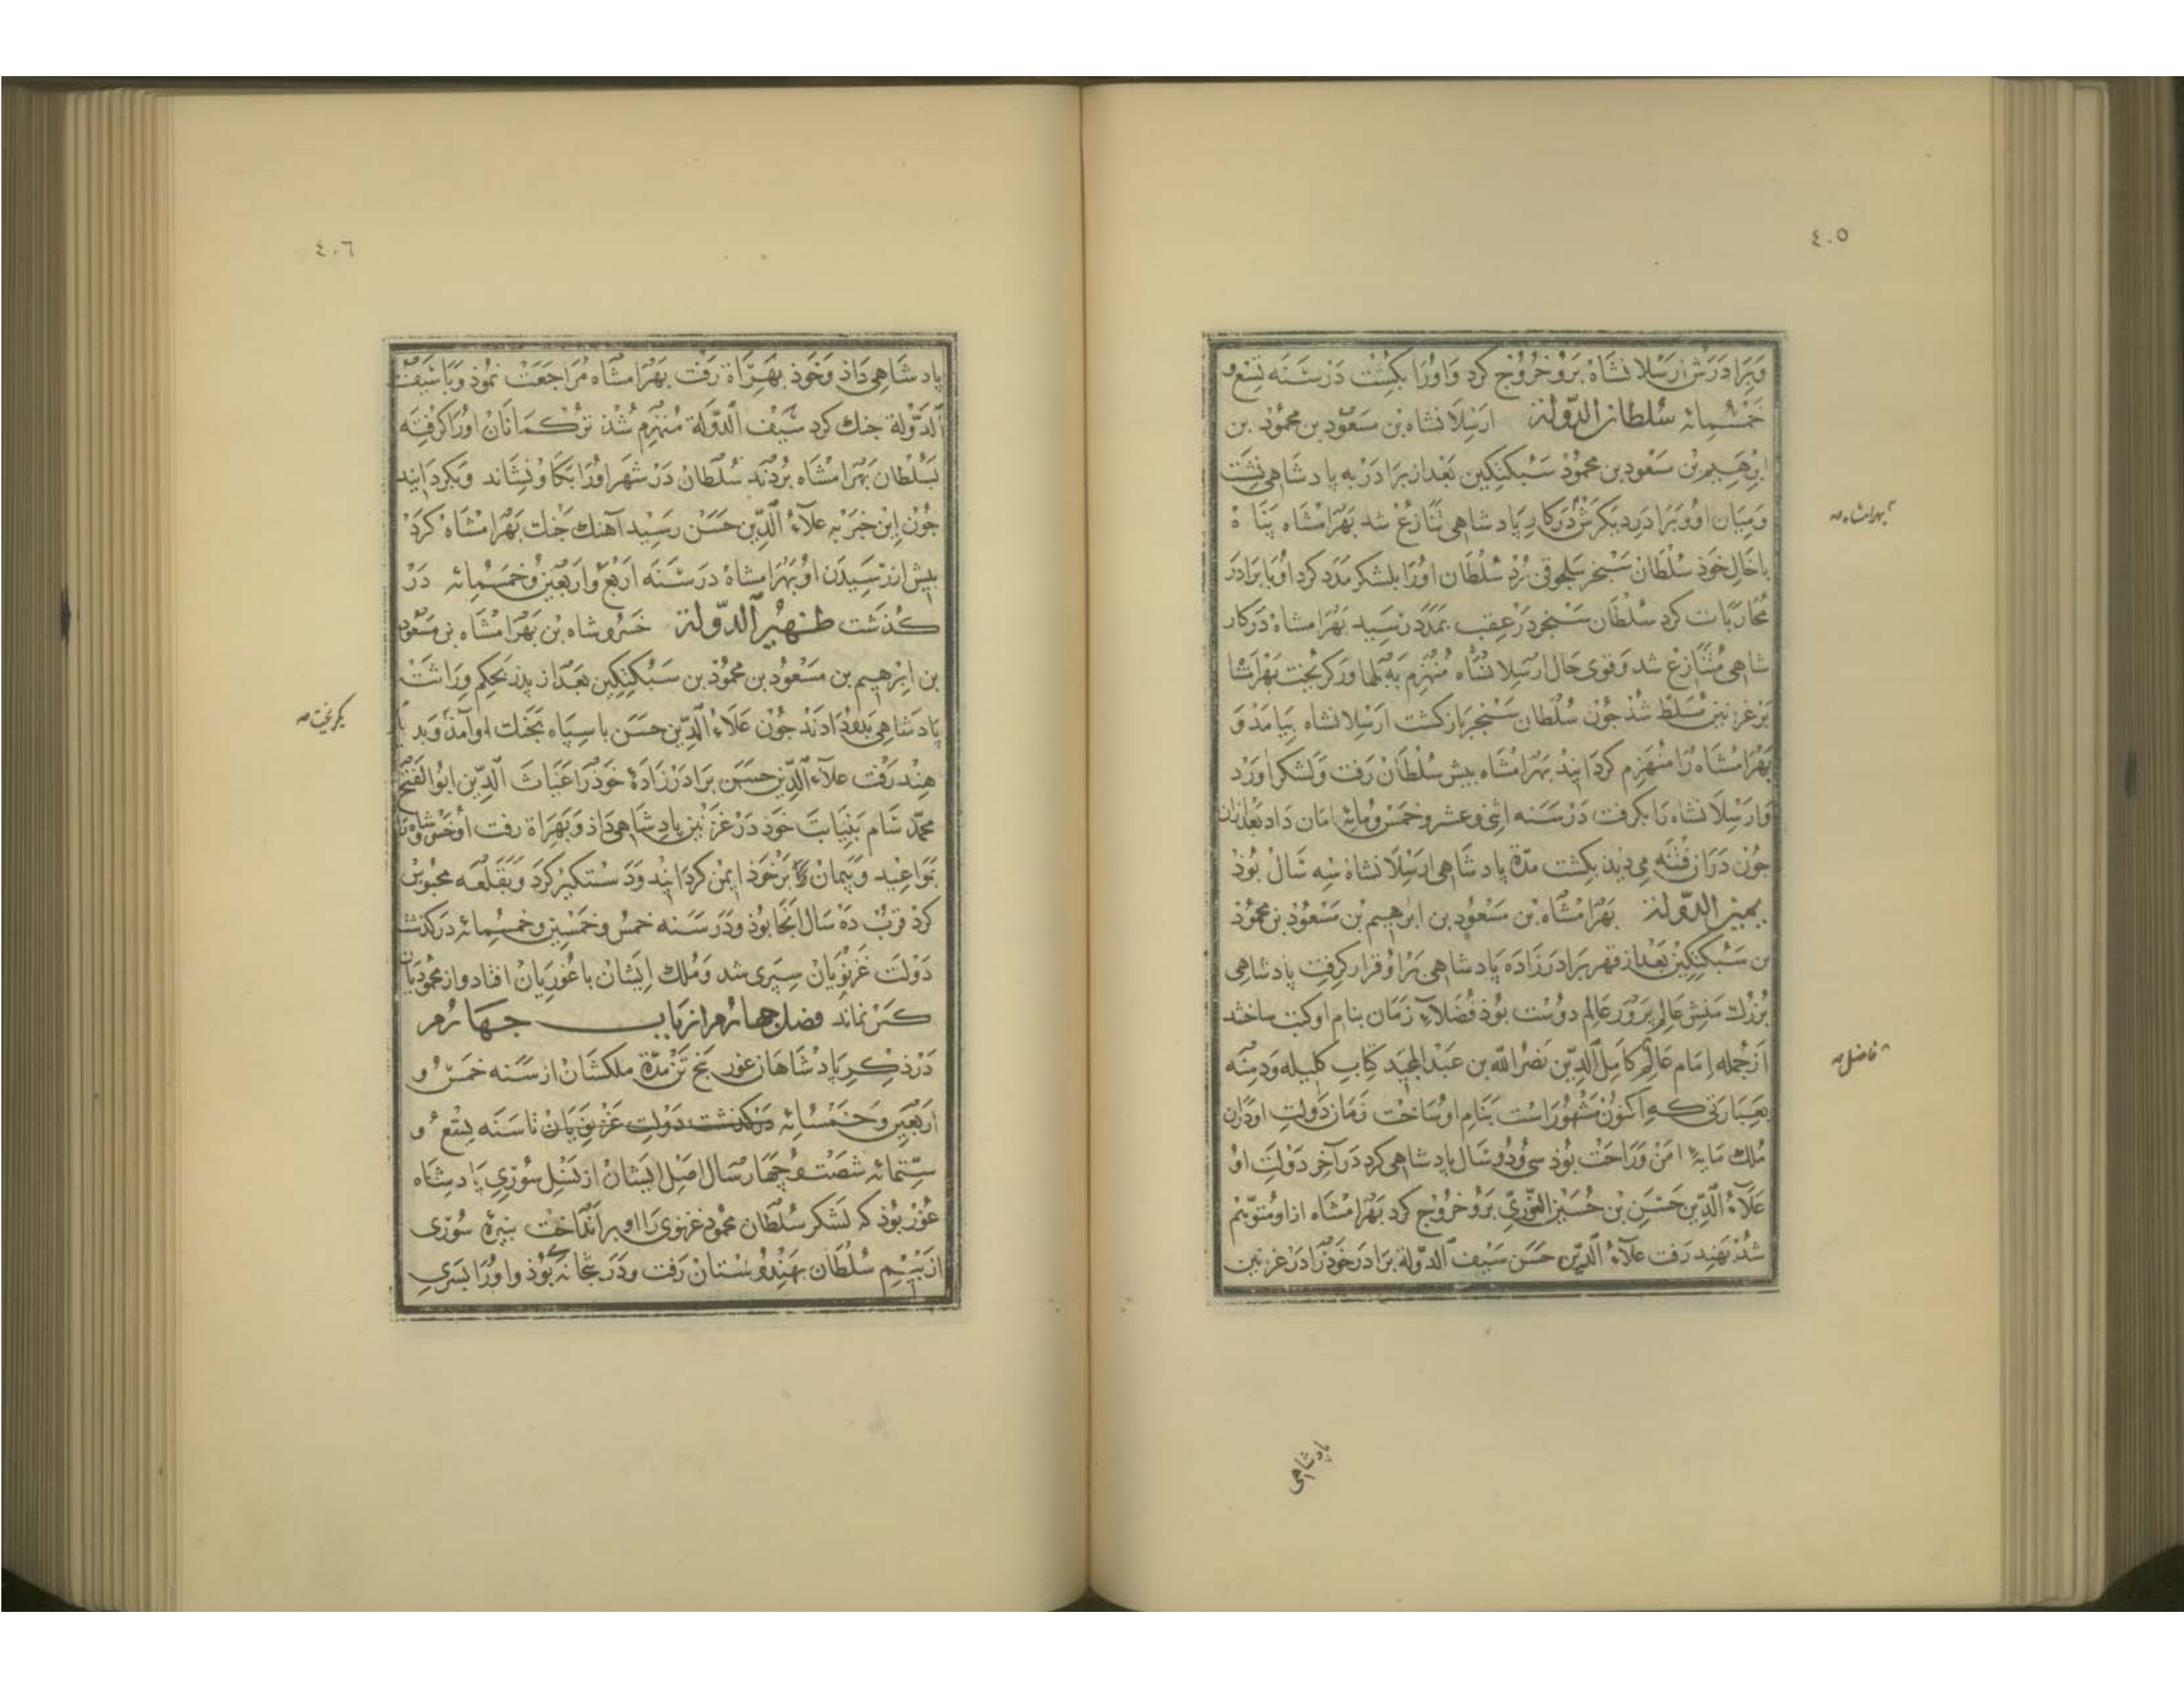 ٤٠٥
وَبَرادَرَش ارَسْلانشَاه بَرو خرُوُج كرد وَاوُرا بكُشت دَرْسَنَه تِسْع و
خَمْسُمِائه سُلطان الدّولة ارَسْلَانشاه بن مَسعُود بن محمُوُد بن
ابرهيم بن مَسعُود بن محمُوُد سَبُكتكين بَعْد از بَرادَر به پادشاهى نشَت
وَمِيَان اوُ وَبَرادَر ديكرش دَر كارِ پادشاهى تنَازعُ شد بَهْرامْشاه پَنَاه
بهرامشاه صه
با خَالِ خَوذ سُلطَان سَنجر سَلجوقى بُرْد سُلطَان اوُرا بلشكر مَدَد كرد اوُ با بَرادَر
مُحارَبَات كرد سُلطَان سَنجر دَرْ عقب بمَدَد رسَيد بَهْرَامشاه دَركار
شاهى مُتنَازعُ شد وَقوى حَال ارسلانشاه مُنهَزِم به لهاور كريخت بَهْرامشا
بَر غزنين مُسَلط شُذ چوُن سُلطان سَنجر بَازكشت ارسْلانشاه بيَامَدْ وَ
بَهْرَامْشَاه رَا مُنْهَزِم كردَانيد بَهرامْشاه پيش سُلطَان رَفت وَلشكر اورْد
وَارسْلَانشاه رَا بكرفت دَرْ سَنَه اثنى وعشر وخمس ومائه امَان دَاد بَعْدازان
چوُن دَران فتنَه مى ديد بكشت مدّة پادشاهى ارسْلَانشاه سِه سَال بُوذ
يمين الدّولة بهْرَامشَاه بن مَسْعُود بن ابرهيم بن مَسْعُوذ بن محمُوُذ
بن سَبُكتكين بَعْد از قهر بَرادَرْزَادَه پادشاهى بَر اوُ قرار كرفت پادشاهى
بُزرك مَنِش عَالِم پَرْوَر عَالِم دوُست بوُذ فُضَلاءِ زمَان بنام او كتب ساختند
ازجُمله امَام عَالِم كامِل الدّين نَصْرُ الله بن عَبْد المجيَد كِتابِ كليله وَدمنَه
فاضل صه
بعبَارتى كه اكنوُن مشهُورَاست بَنامِ اوُ سَاخت زمَان دَولتِ او دَران
مُلك مَايَهٔ امَنْ وَرَاحَت بوُذ سى وُدو سَال پادشاهى كرد دَر آخر دَولَتِ اوُ
عَلَآءُ الدّين حَسَن بن حُسَين الغوُرىّ بَروُ خرُوج كرد بَهْرامْشاه ازاو مُتوهّم
شُذ بَهند رَفت علَآءُ الدّين حَسَن سَيف الدّولة برادَرخَوذرَا دَرْ غزنين
پادشاهى
٤٠٦
پادشاهى دَاذ وَخوَذ بَهَراة رَفت بَهْرامْشاه مُرَاجَعَت نموُد وَبا سَيْف
الدّوْلة جنك كرد سَيْف الدّولَة مُنهَزم شُذ تركمَانَان اوُرَا كرفته
بسُلْطان بَهْرَامشاه برُدند سُلطان دَرْ شهر اوُرَا بَكاو نشاند وَبكردَانيد
چوُن اين خَبَر به علَآءُ الدّين حَسَن رسَيد آهنك جَنك بَهْرامْشاه كَرد
پيش از رسَيدَن او بَهْرامشاه دَر سَنَه اَربَعْ وَاربَعين وخمَسُمِائه دَرْ
كُذشت ظهير الدّولة خسروشاه بن بَهْرَامْشاه بن مَسْعوُد
بن ابْرهيم بن مَسْعُود بن محمُوُد بن سَبُكتكين بَعْد از پدَر بحكم وِرَاثت
پَادشاهى بدو دادَند چوُن عَلَاء الدّين حَسَن باسپاه بجَنك او آمَد وَبدَ يا
بكريخت صه
هِند رَفت علَآء الدّين حسَن برَادَرْزَادَهٔ خوَدرَا غيَاث الدّين ابوُ الفتح
محمّد سَام بنيَابت خوَد دَرْ غزنين پادشاهى دَاذ وَبهَرَاة رفت اوُ خسروشاه را
بموَاعيد وَپيمان بَرْ خَوذ ايمن كردَانيد وَدَسْتكير كرَد وَبقلعَه محبُوس
كرد قربْ دَه سَال انجَا بوُد وَدَر سَنه خمس وخمسين وخمسُمائه دَركذشت
دَوْلت غَزنويَان سپَرى شد وَمُلك ايشان باغُوريَان افتاد واز محموديان
كس نماند فصل چهارم از باب چهارم
دَر ذكرِ پادشاهان غور پنج تن مدّة ملكشان از سَنه خمس و
اربَعين وَخمَسْمائه دركذشت دولت غزنويان تا سَنَه تِسْع و
ستّمائه شصت وچهار سَال اصل ايشان از نسَل سوُرى پادشاه
غوُر بوُذ كه لشكر سُلطان محموُد غزنوى رَا او بر انداخت نبيرهٔ سوُرى
از بيم سُلطان بَهندُوُستان رَفت ودَر بتخانه بوُذ واوُرَا پسَرى